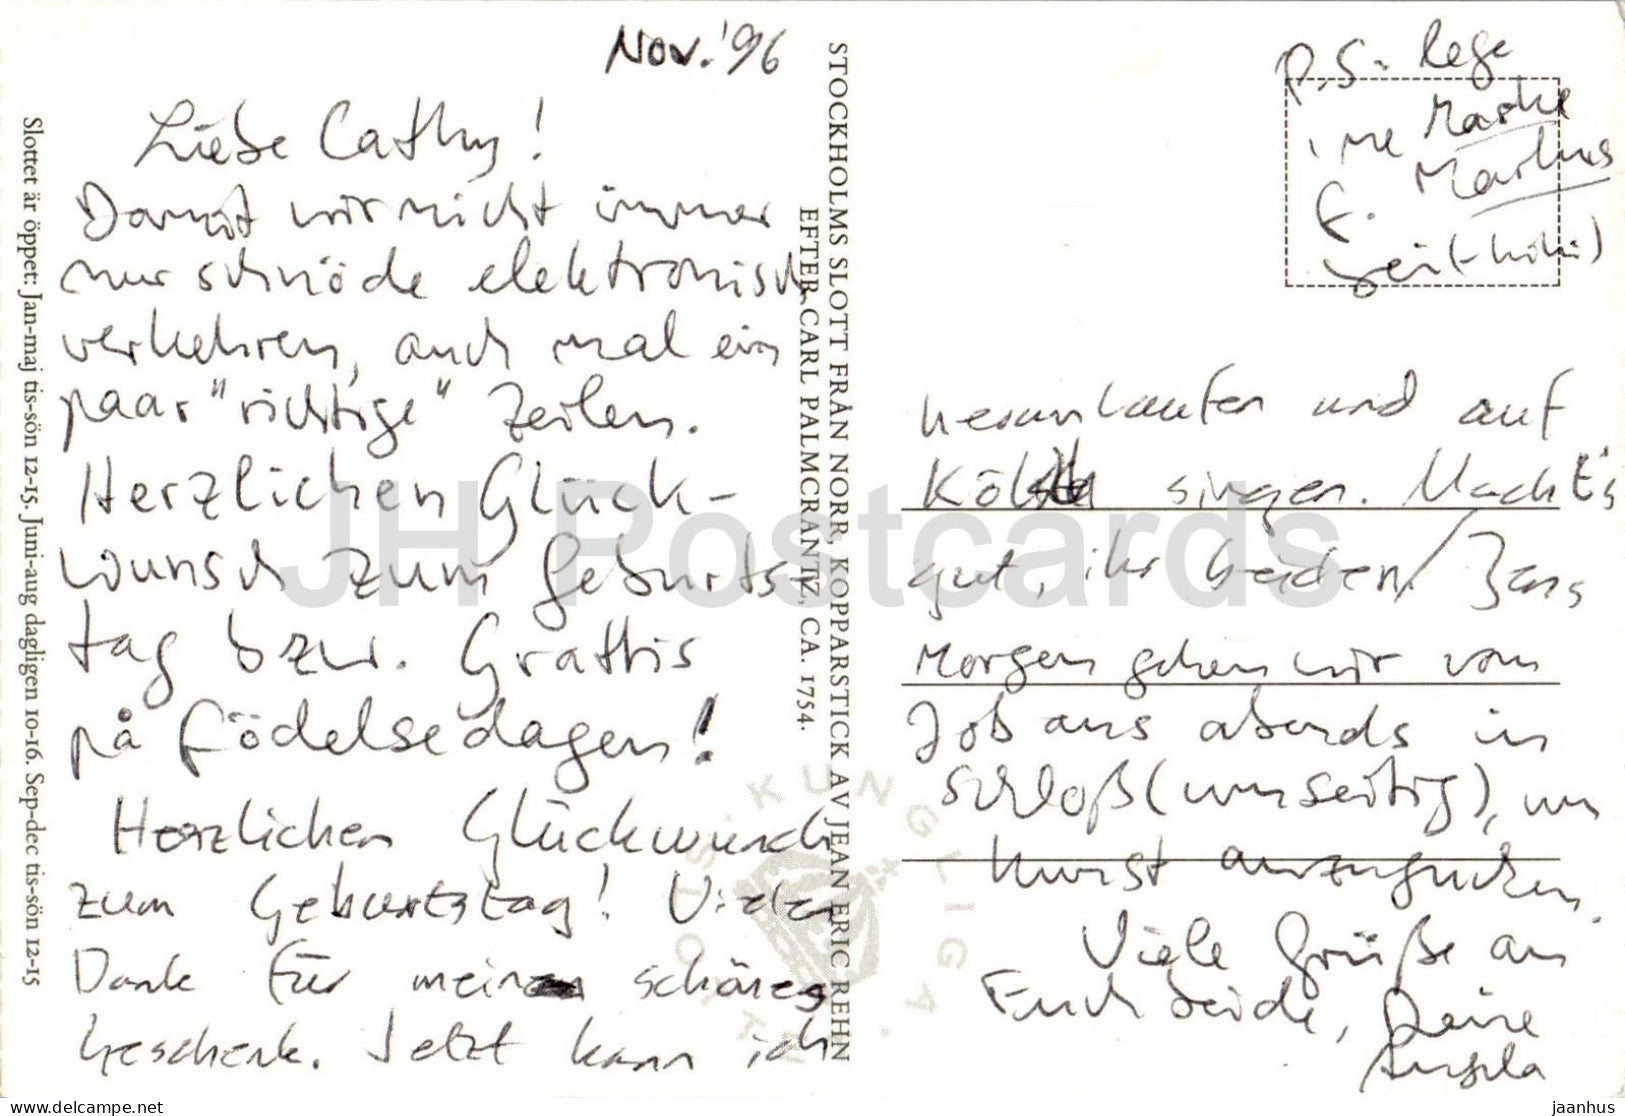 Nov. '96
Liebe Cathy!
Damit wir nicht immer
nur schnöde elektronisch
verkehren, auch mal ein
paar "richtige" Zeilen.
Herzlichen Glück-
wunsch zum Geburts-
tag bzw. Grattis
på födelsedagen!
Herzlichen Glückwunsch
zum Geburtstag! Vielen
Dank für mein schönes
Geschenk. Jetzt kann ich
herumlaufen und auf
Köl singen. Macht's
gut, ihr beiden /
Morgen gehen wir vom
Job aus abends in
Schloß (unseitig), um
Kunst anzugucken.
Viele Grüße an
Euch beide, Deine
Angela
P.S. lege
ine Marke
f. Markus
bei (-hihi)
STOCKHOLMS SLOTT FRÅN NORR, KOPPARSTICK AV JEAN ERIC REHN
EFTER CARL PALMCRANTZ, CA. 1754.
Slottet är öppet: Jan-maj tis-sön 12-15. Juni-aug dagligen 10-16. Sep-dec tis-sön 12-15
KUNGLIGA
SLOTTET
JH Postcards
www.delcampe.net
jaanhus